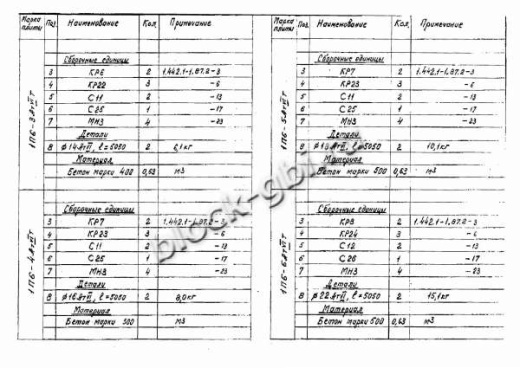 Марка плиты Поз. Наименование Кол. Примечание
1П6-3АтVТ
Сборочные единицы
3 КР6 2 1.442.1-1.87.2-3
4 КР22 3 -6
5 С11 2 -13
6 С25 1 -17
7 МН3 4 -23
Детали
8 l=5050 2 6,1кг
Материал
Бетон марки 400 0,63 м3
Сборочные единицы
3 КР7 2 1.442.1-1.87.2-3
4 КР23 3 -6
5 С11 2 -13
6 С25 1 -17
7 МН3 4 -23
Детали
8 ø16АтV, l=5050 2 8,0кг
Материал
Бетон марки 500 м3
Марка плиты Поз. Наименование Кол. Примечание
Сборочные единицы
3 КР7 2 1.442.1-1.87.2-3
4 КР23 3 -6
5 С11 2 -13
6 С25 1 -17
7 МН3 4 -23
Детали
8 l=5050 2 10,1кг
Материал
Бетон марки 500 0,63 м3
Сборочные единицы
3 КР8 2 1.442.1-1.87.2-3
4 КР24 3 -6
5 С12 2 -13
6 С26 1 -17
7 МН3 4 -23
Детали
8 l=5050 2 15,1кг
Материал
Бетон марки 500 0,63 м3
block-gbi.ru